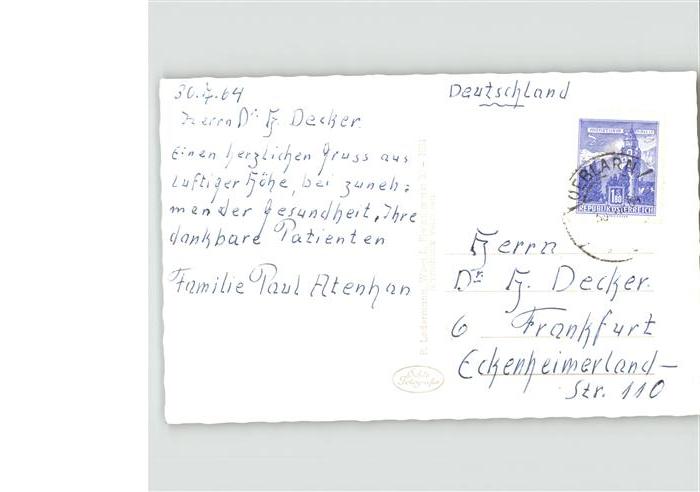 30.7.64
Herrn Dr. H. Decker.
Einen herzlichen Gruss aus
luftiger Höhe, bei zuneh=
mender Gesundheit, Ihre
dankbare Patienten
Familie Paul Atenhan
Deutschland
1.80
REPUBLIK ÖSTERREICH
OEBLARN
Herrn
Dr. H. Decker.
6 Frankfurt
Eckenheimerland-
Str. 110
Echte
Fotografie